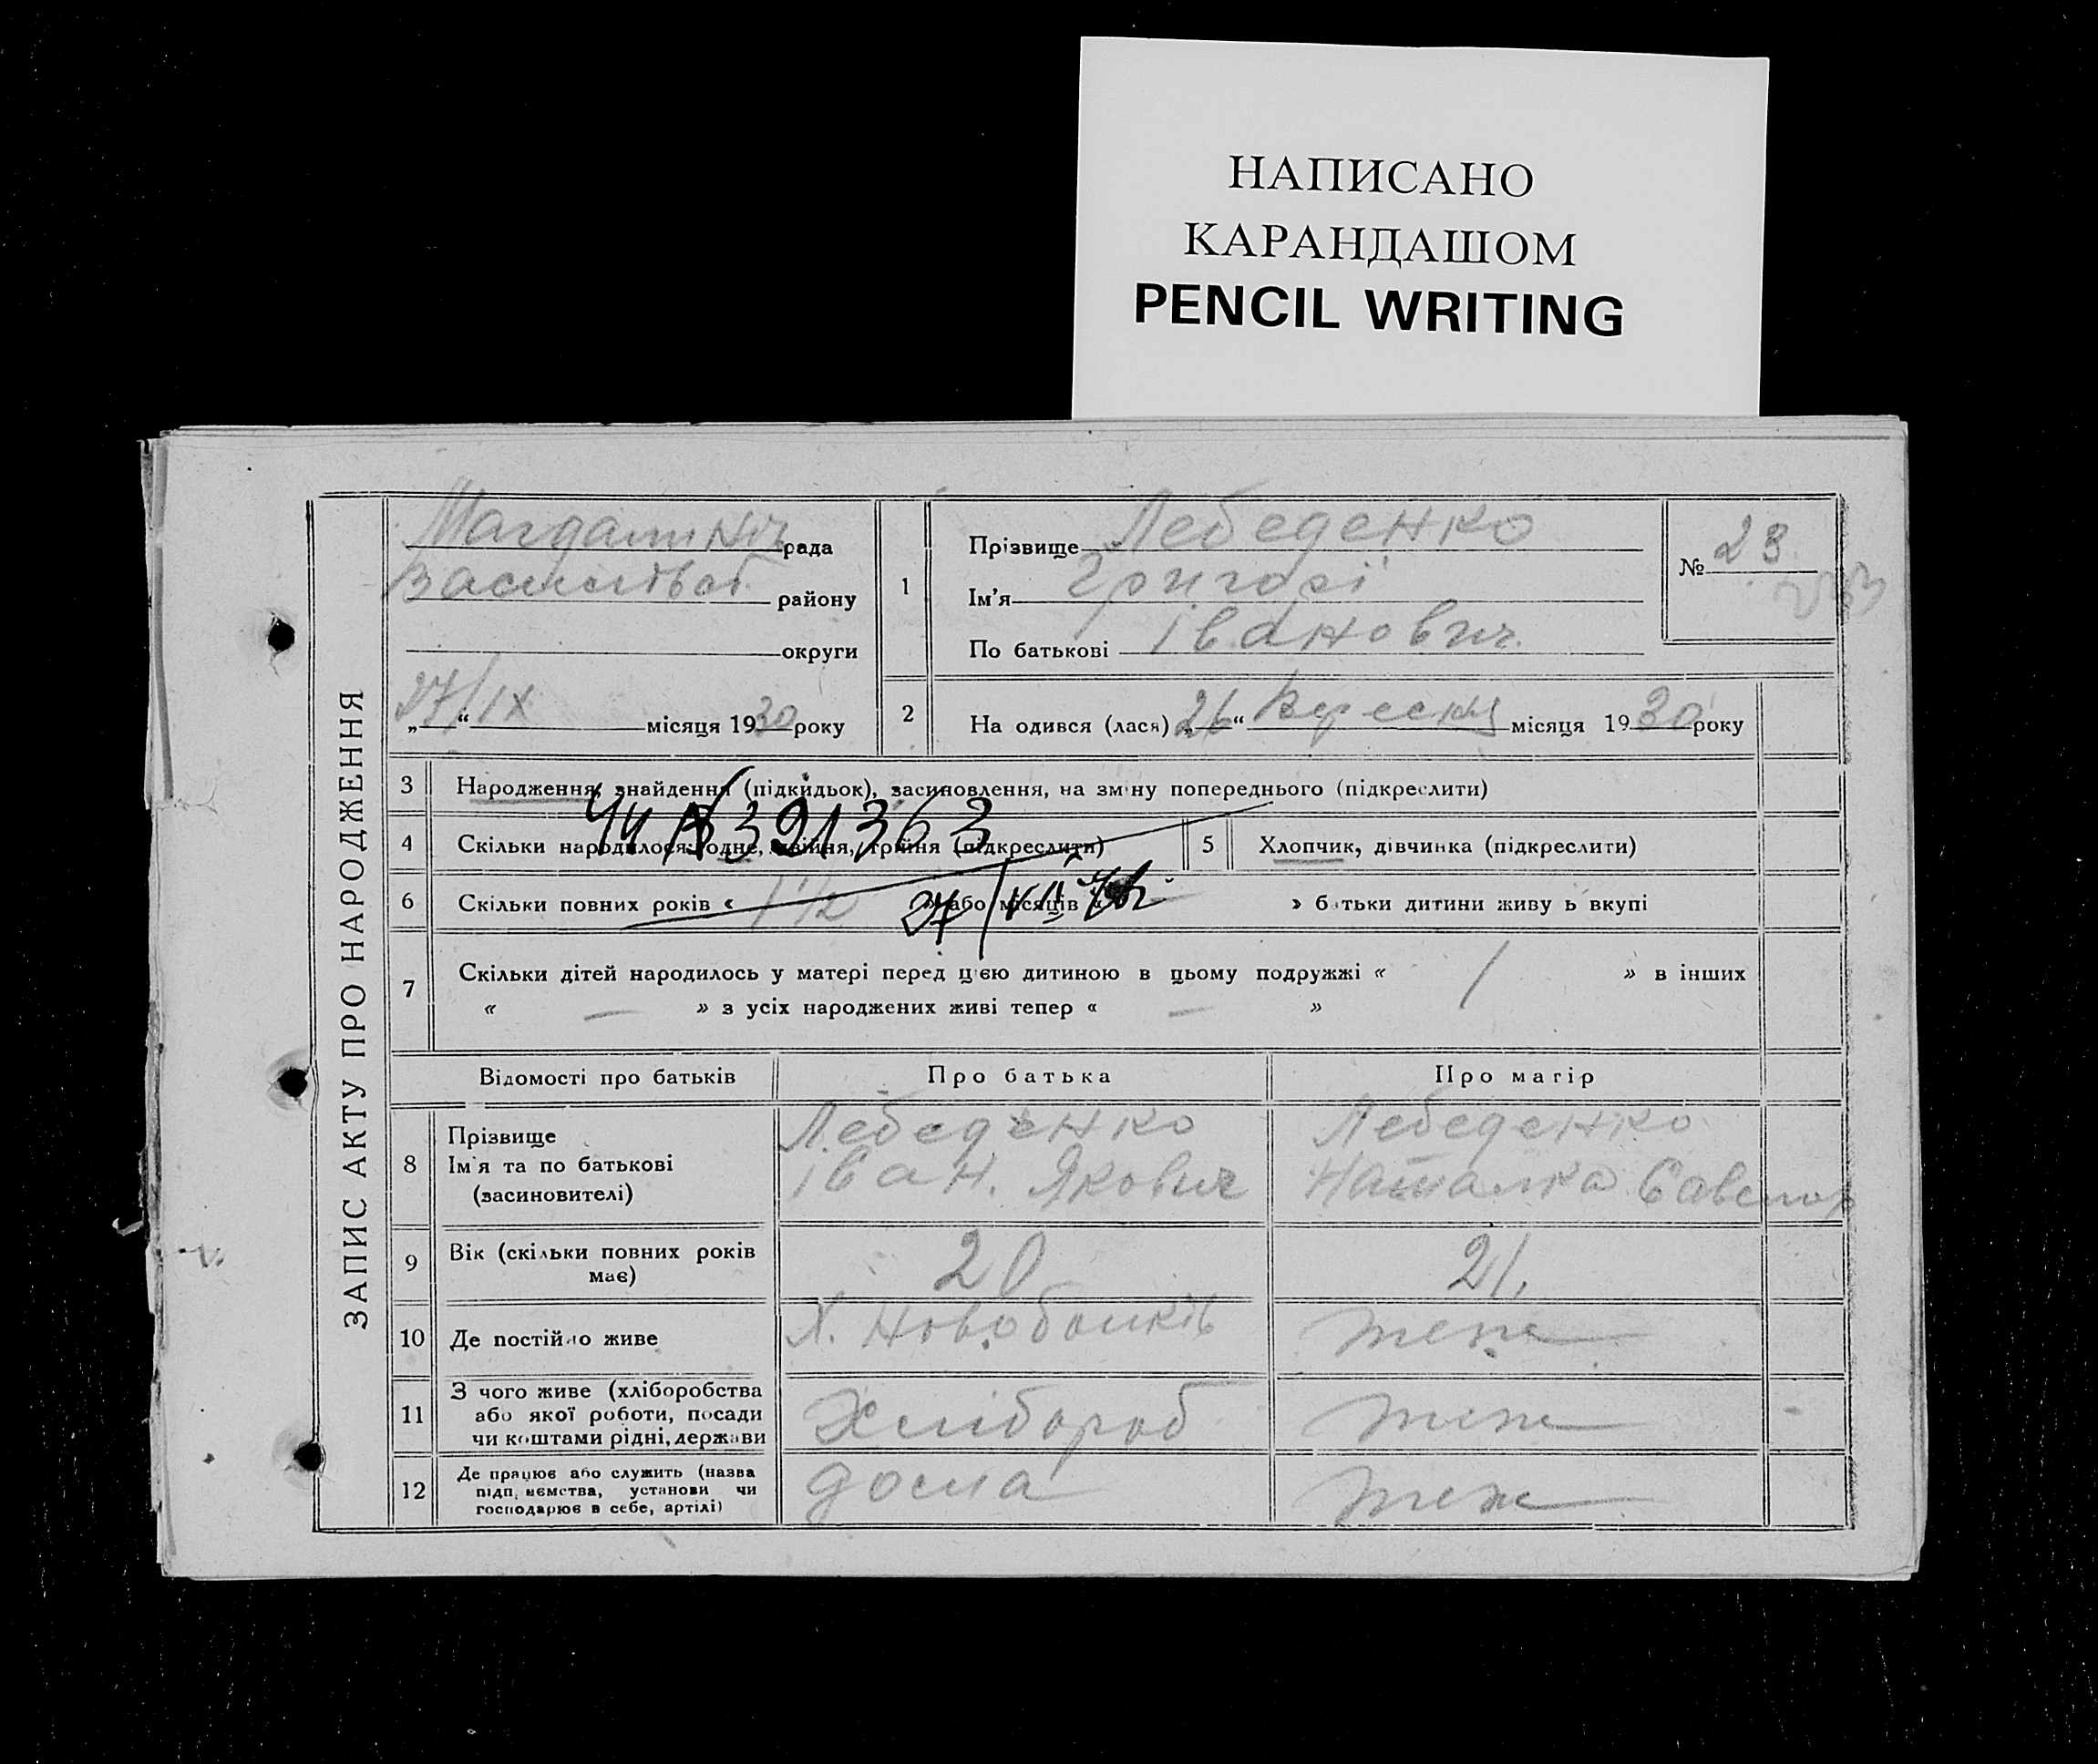 НАПИСАНО
КАРАНДАШОМ
PENCIL WRITING
ЗАПИС АКТУ ПРО НАРОДЖЕННЯ
рада
району
округи
27/IX місяця 1930 року
1
Прізвище Лебеденко
Ім'я Григорі
По батькові Іванович
№ 23
2
На одився (лася) „26“ Вересня місяця 1930 року
3 Народження, знайдення (підкидьок), засиновлення, на зміну попереднього (підкреслити)
391363
4 Скільки народилося: одне, двійня, трійня (підкреслити)
5 Хлопчик, дівчинка (підкреслити)
6 Скільки повних років « 1 1/2 » або місяців « » батьки дитини живу ь вкупі
27/VII
7 Скільки дітей народилось у матері перед цією дитиною в цьому подружжі « 1 » в інших
« — » з усіх народжених живі тепер « — »
Відомості про батьків Про батька Про матір
8 Прізвище
Ім'я та по батькові
(засиновителі)
Лебеденко
Іван. Якович
Лебеденко
Наталка
9 Вік (скільки повних років
має)
20
21.
10 Де постійно живе
Х.
теж
11 З чого живе (хліборобства
або якої роботи, посади
чи коштами рідні, держави
Хлібороб
теж
12 Де працює або служить (назва
підп, ємства, установи чи
господарює в себе, артілі)
дома
теж